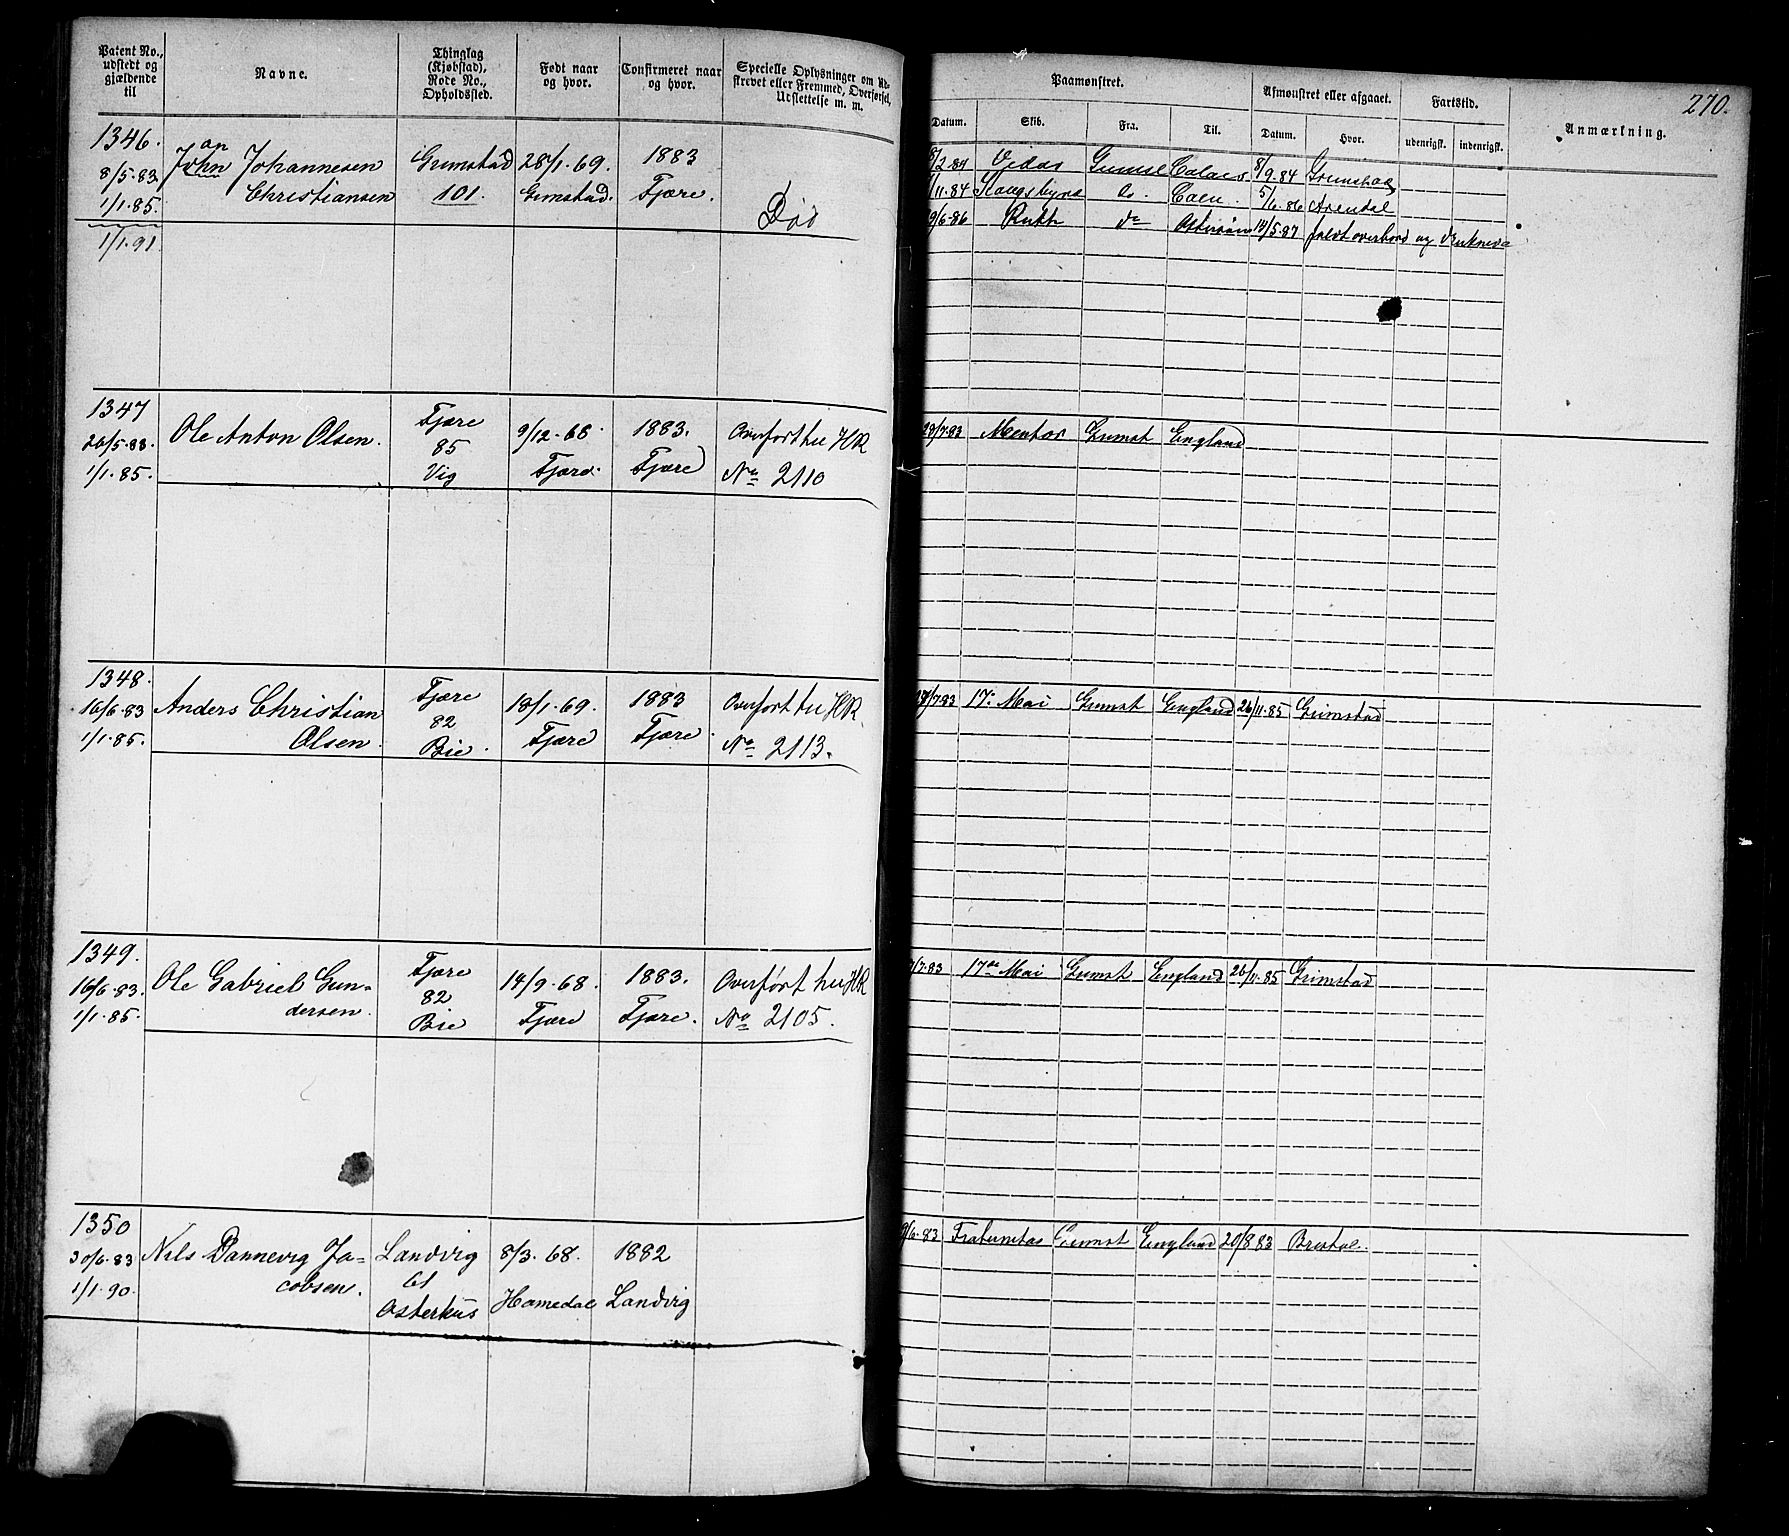 Patent No., udstedt og gjældende til
Navne.
Thinglag (Kjøbstad), Rode No., Opholdssted.
Født naar og hvor.
Confirmeret naar og hvor.
Specielle Oplysninger om Udskrevet eller Fremmed, Overførsel, Udslettelse m. m.
Paamønstret.
Datum.
Skib.
Fra.
Til.
Afmønstret eller afgaaet.
Datum.
Hvor.
Fartstid.
udenrigsk.
indenrigsk.
Anmærkning.
270.
1346.
8/5.83
1/1.85.
1/1.91
an
John Johannesen
Christiansen
Grimstad
101.
28/1.69.
Grimstad.
1883
Fjære.
Død
8/2.84 Vidar Grimst Calais 8/9.84 Grimstad
/11.84 do. Caen. 5/6.86 Arendal
9/6.86 Ruth do 14/5.87 faldt overbord og druknede
1347
26/5.83.
1/1.85.
Ole Anton Olsen.
Fjære
85
Vig
9/12.68.
Fjære.
1883.
Fjære
Overført til HR
No 2110
23/7.83 Mentor Grimst England
1348.
16/6.83
1/1.85.
Anders Christian
Olsen.
Fjære
82
Bie.
18/1.69.
Fjære
1883
Fjære.
Overført til HR
No 2113.
/7.83 17. Mai Grimst England 26/11.85 Grimstad
1349.
16/6.83.
1/1.85.
Ole Gabriel Gun-
dersen.
Fjære
82
Bie
14/9.68.
Fjære
1883.
Fjære.
Overført til HR
No 2105.
/7.83 17de Mai Grimst England 26/11.85 Grimstad
1350
30/6.83
1/1.90.
Nils Dannevig Ja-
cobsen.
Landvig
61
Østerhus
8/3.68.
Homedal
1882
Landvig
9/6.83 Fraternitas Grimst England 20/8 83 Bristol.